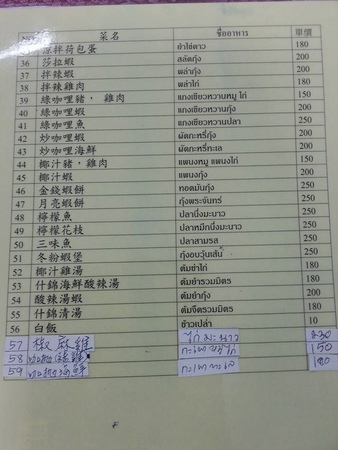 菜名 ชื่ออาหาร 單價
涼拌荷包蛋 ยำไข่ดาว 180
36 莎拉蝦 สลัดกุ้ง 200
37 拌辣蝦 พล่ากุ้ง 200
38 拌辣雞肉 พล่าไก่ 180
39 綠咖哩豬，雞肉 แกงเขียวหวานหมู ไก่ 150
40 綠咖哩蝦 แกงเขียวหวานกุ้ง 200
41 綠咖哩魚 แกงเขียวหวานปลา 250
42 炒咖哩蝦 ผัดกะหรี่กุ้ง 200
43 炒咖哩海鮮 ผัดกะหรี่ทะเล 200
44 椰汁豬，雞肉 แพนงหมู แพนงไก่ 150
45 椰汁蝦 แพนงกุ้ง 200
46 金錢蝦餅 ทอดมันกุ้ง 250
47 月亮蝦餅 กุ้งพระจันทร์ 250
48 檸檬魚 ปลานึ่งมะนาว 250
49 檸檬花枝 ปลาหมึกนึ่งมะนาว 250
50 三味魚 ปลาสามรส 250
51 冬粉蝦堡 กุ้งอบวุ้นเส้น
52 椰汁雞湯 ต้มข่าไก่ 180
53 什錦海鮮酸辣湯 ต้มยำรวมมิตร 200
54 酸辣湯蝦 ต้มยำกุ้ง 200
55 什錦清湯 ต้มจืดรวมมิตร 200
56 白飯 ข้าวเปล่า 10
57 椒麻雞 ไก่มะนาว 230
58 150
59 180